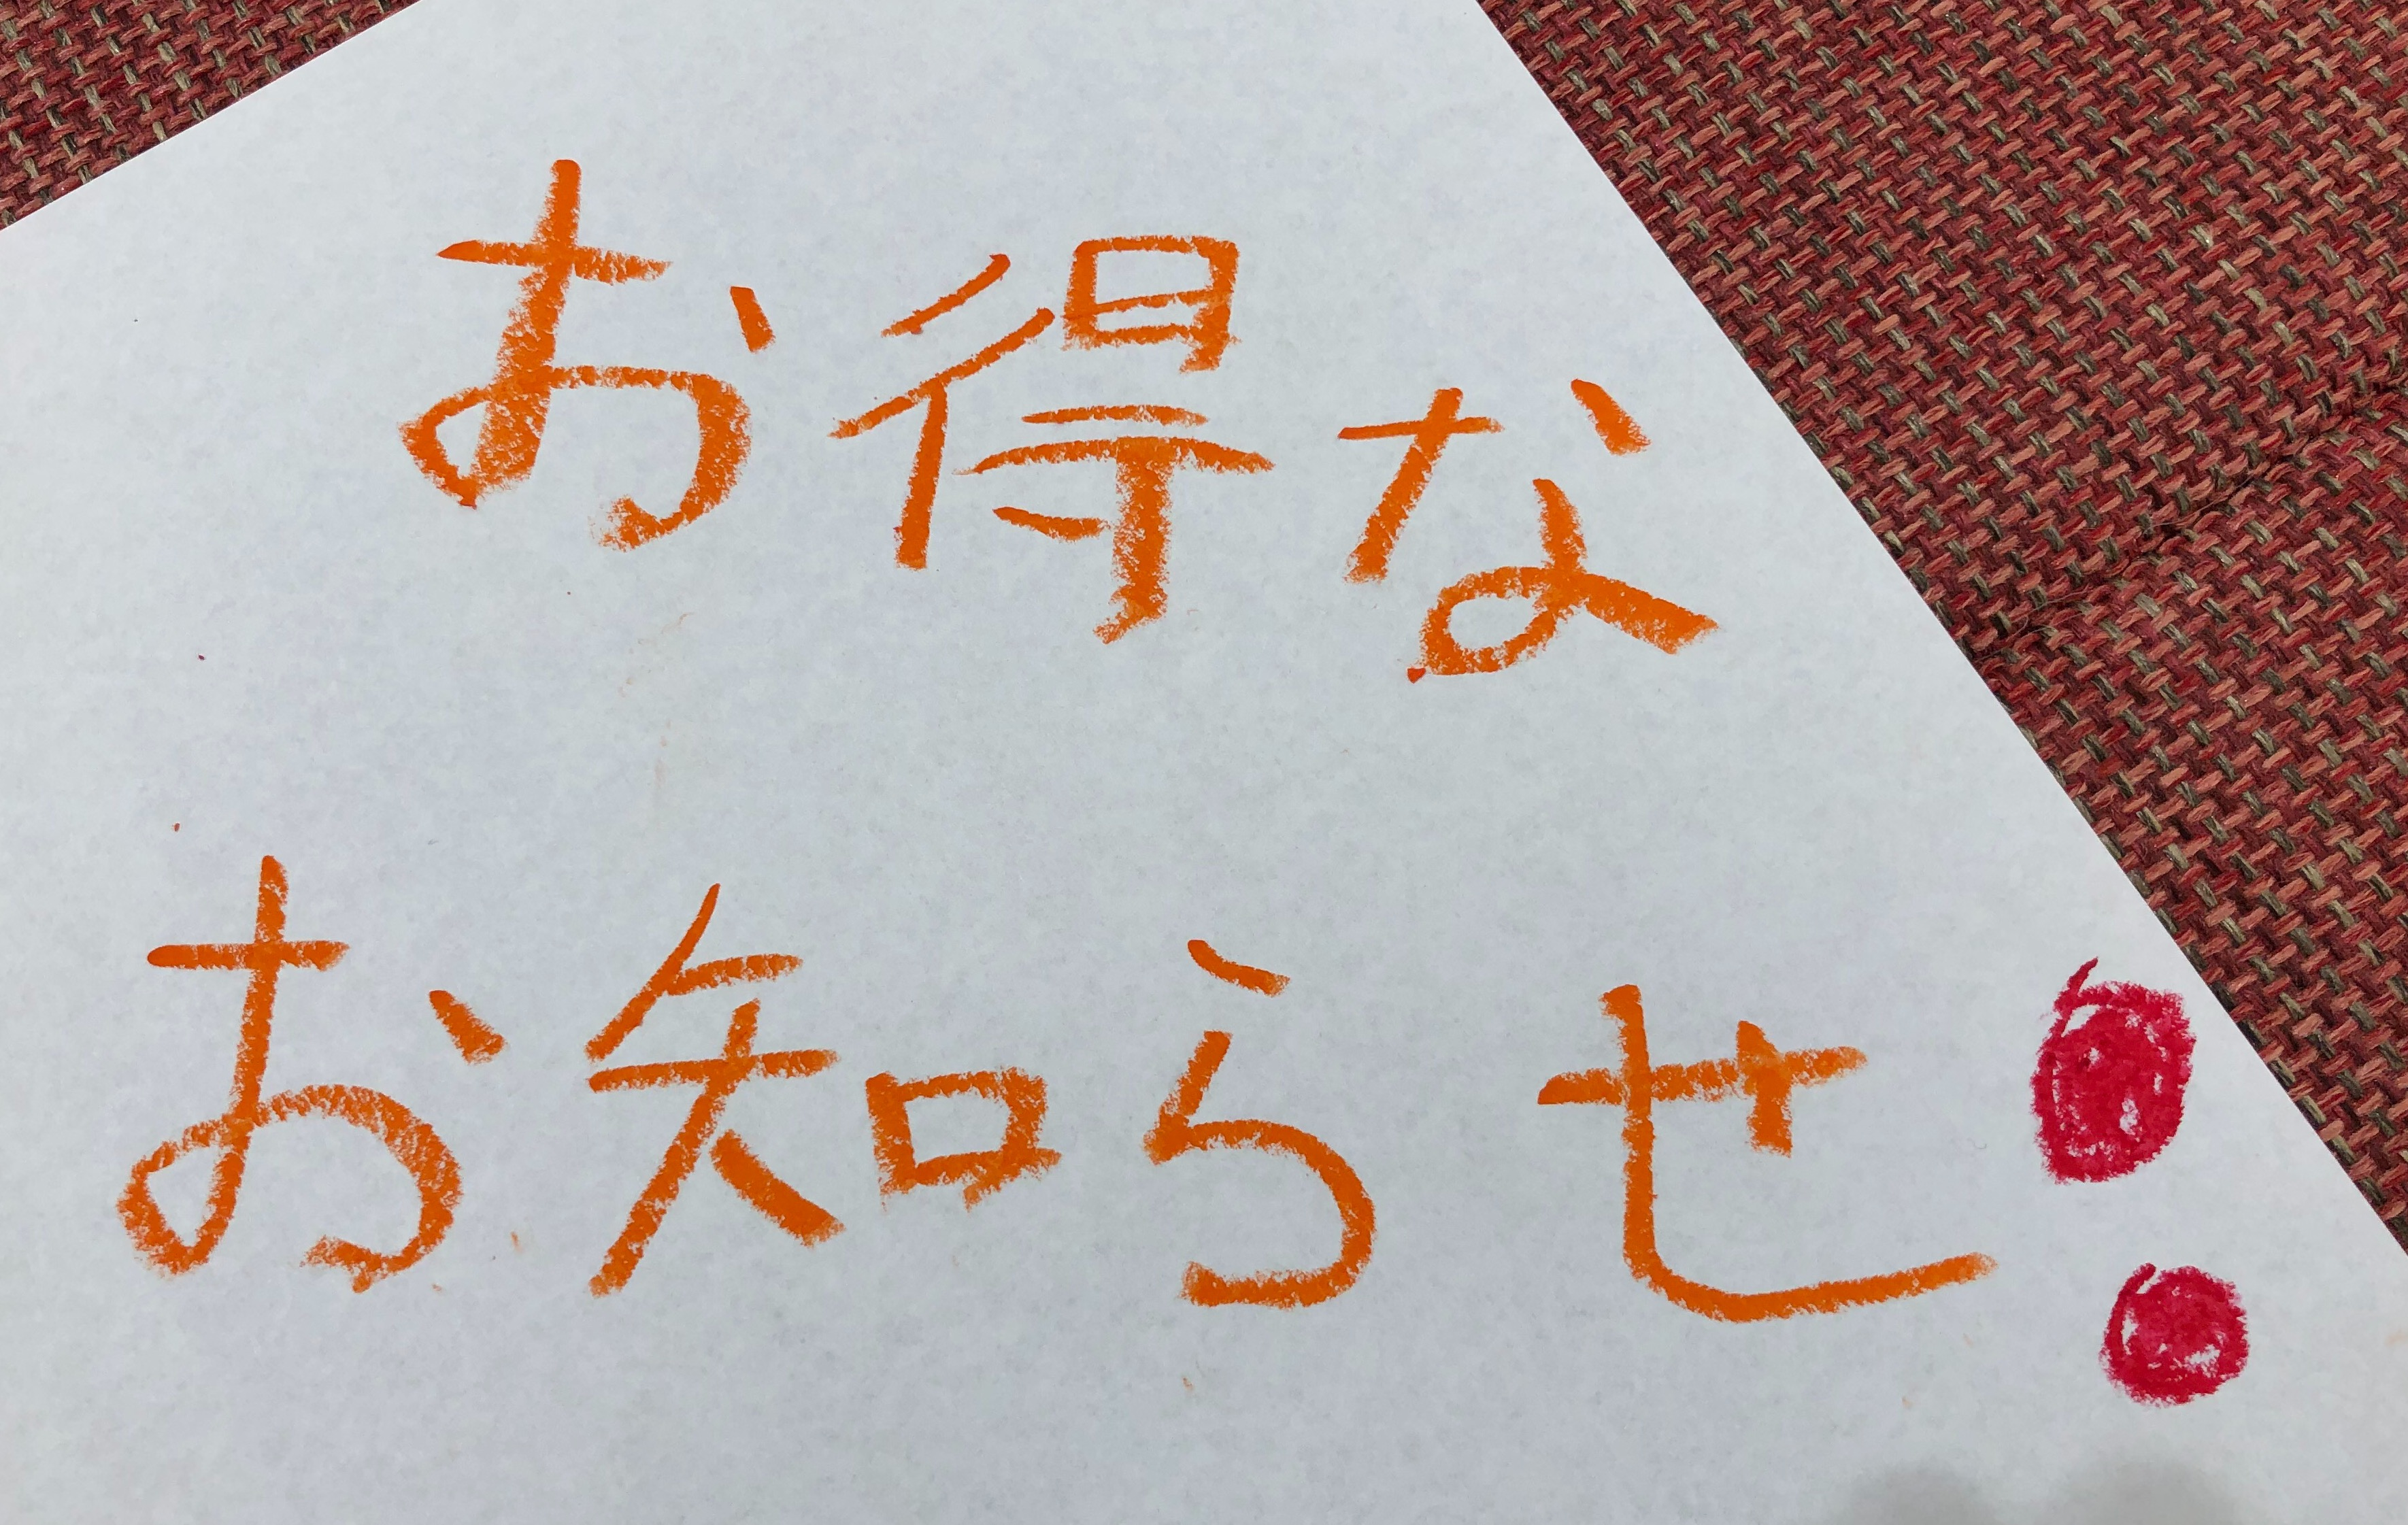 お得な
お知らせ